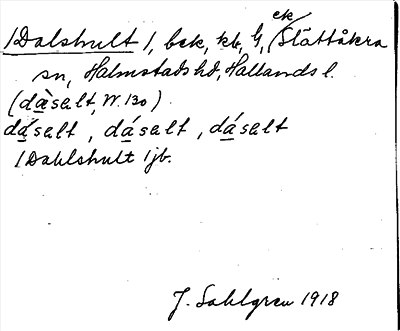 ek
/Dalshult/, bek, kb, G, /Slättåkra
sn, Halmstads hd, Hallands l.
(dàsalt, W. 130)
dásalt, dásalt, dásalt
/Dahlshult/jb.
J. Sahlgren 1918